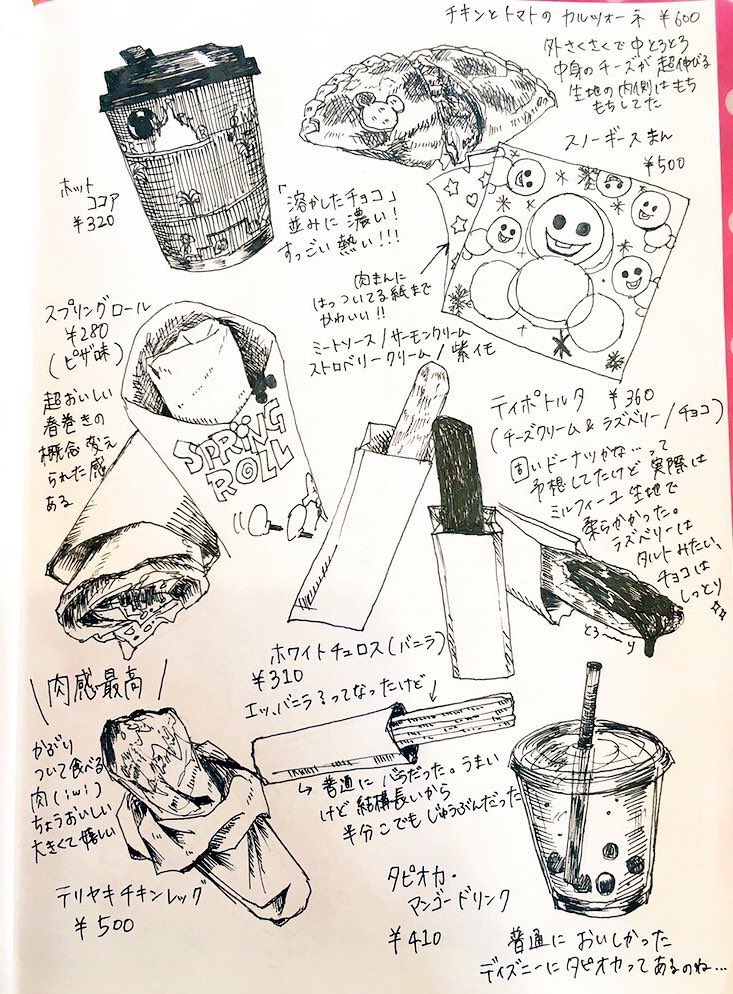 チキンとトマトの カルツォーネ ¥600
外さくさくで中とろとろ
中身のチーズが超伸びる
生地の内側はもち
もちしてた
ホット
ココア
¥320
「溶かしたチョコ」
並みに濃い!
すっごい熱い!!!
スノーギースまん
¥500
肉まんに
はっついてる紙まで
かわいい!!
ミートソース/サーモンクリーム
ストロベリークリーム/紫イモ
スプリングロール
¥280
(ピザ味)
超おいしい
春巻きの
概念変え
られた感
ある
SPRING
ROLL
ティポトルタ ¥360
(チーズクリーム&ラズベリー/チョコ)
固いドーナツかな…って
予想してたけど 実際は
ミルフィーユ生地で
柔らかかった。
ラズベリーは
タルトみたい、
チョコは
しっとり
とろ〜り
ホワイトチュロス(バニラ)
¥310
エッ、バニラ?ってなったけど
普通にバニラだった。うまい
けど結構長いから
半分こでもじゅうぶんだった
\肉感最高/
かぶり
ついて食べる
肉(iwi)
ちょうおいしい
大きくて嬉しい
テリヤキチキンレッグ
¥500
タピオカ・
マンゴードリンク
¥410
普通に おいしかった
ディズニーにタピオカってあるのね…